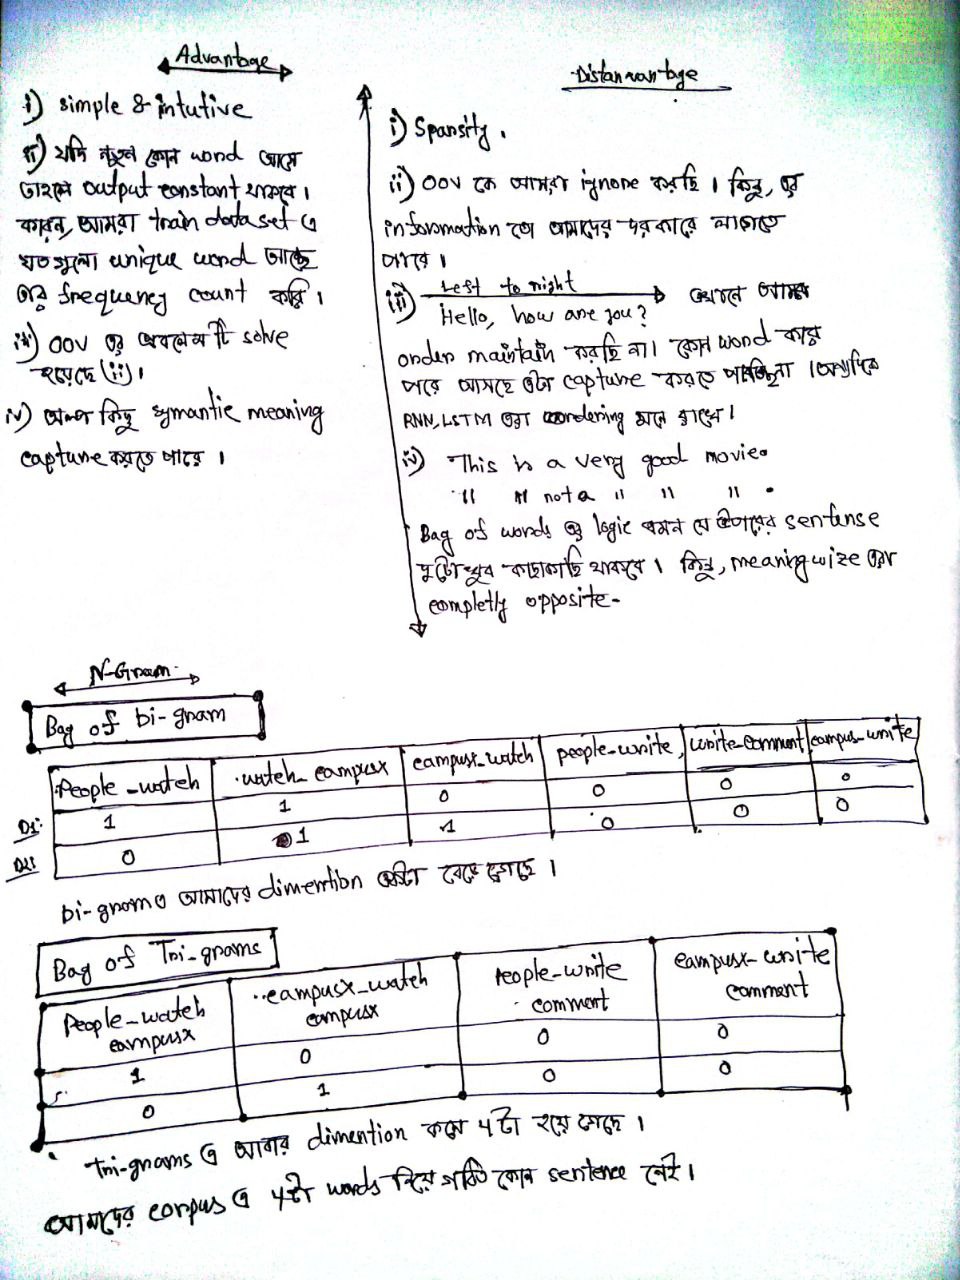 Advantage
i) simple & intutive
ii) যদি নতুন কোন word আসে
তাহলে output constant থাকবে।
কারন, আমরা train dataset এ
যতগুলো unique word আছে
তার frequency count করি।
iii) OOV এর প্রবলেম টি solve
হয়েছে (ii)।
iv) অল্প কিছু symantic meaning
capture করতে পারে।
Distanvantage
i) Sparsity.
ii) OOV কে আমরা ignore করছি। কিন্তু, এর
information তো আমাদের দরকারে লাগতে
পারে।
iii) Left to right
Hello, how are you? এখানে আমরা
order maintain করছি না। কোন word কার
পরে আসছে এটা capture করতে পারছিনা। অন্যদিকে
RNN, LSTM এরা ordering মনে রাখে।
iv) This is a very good movie.
" " not a " " " .
Bag of words এর logic এমন যে উপরের sentense
দুটো খুব কাছাকাছি থাকবে। কিন্তু, meaning wize এরা
completly opposite-
N-Gram
Bag of bi-gram
People_watch watch_campusx campusx_watch people-write write-comment campus-write
D1: 1 1 0 0 0 0
D2: 0 1 1 0 0 0
bi-gram এ আমাদের dimention বেড়ে গেছে।
Bag of Tri-grams
People_watch campusx_watch People-write campusx-write
campusx campusx comment comment
1 0 0 0
0 1 0 0
tri-grams এ আবার dimention কমে 4টা হয়ে গেছে।
আমাদের corpus এ 4টা words নিয়ে গঠিত কোন sentence নেই।